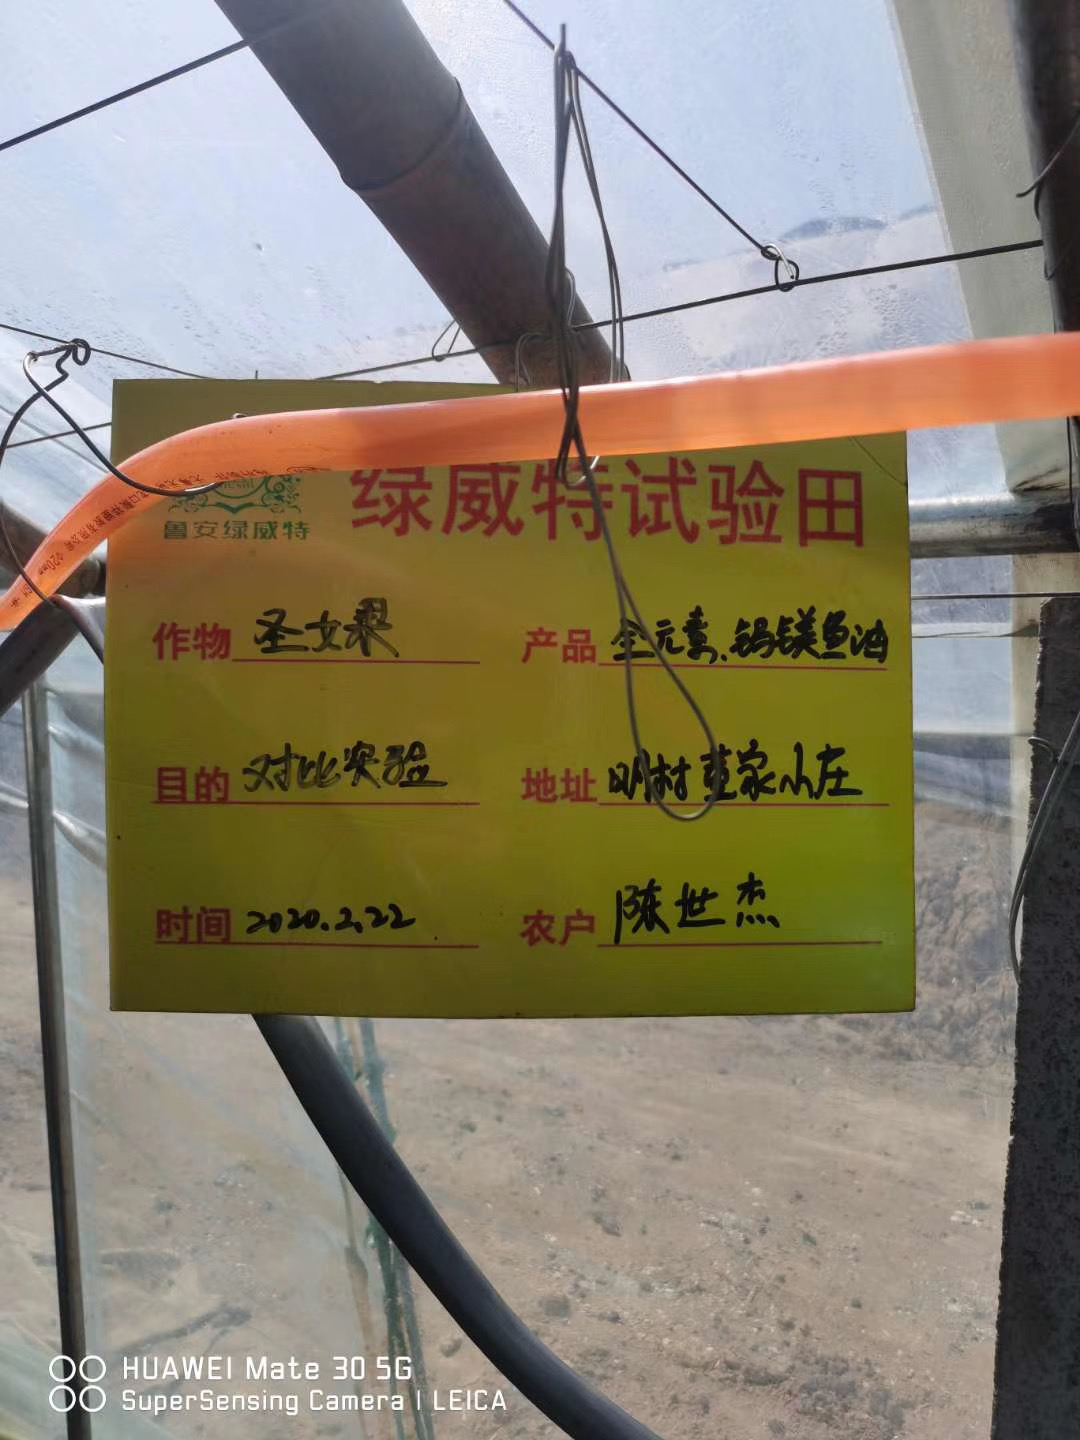 鲁安绿威特
绿威特试验田
作物 圣女果
产品 全元素、钙镁鱼油
目的 对比实验
地址 明村董家小庄
时间 2020.2.22
农户 陈世杰
HUAWEI Mate 30 5G
SuperSensing Camera | LEICA